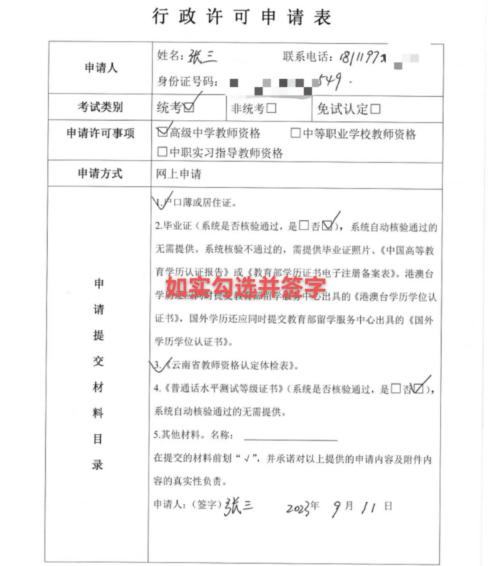 行政许可申请表
申请人
姓名: 张三 联系电话: 1811197
身份证号码: 549.
考试类别
统考☑ 非统考□ 免试认定□
申请许可事项
☑高级中学教师资格 □中等职业学校教师资格
□中职实习指导教师资格
申请方式
网上申请
申请提交材料目录
✓1.户口薄或居住证。
2.毕业证（系统是否核验通过，是□否☑），系统自动核验通过的
无需提供，系统核验不通过的，需提供毕业证照片、《中国高等教
育学历认证报告》或《教育部学历证书电子注册备案表》。港澳台
学历还应同时提交教育部留学服务中心出具的《港澳台学历学位认
证书》，国外学历还应同时提交教育部留学服务中心出具的《国外
学历学位认证书》。
如实勾选并签字
✓3.《云南省教师资格认定体检表》。
4.《普通话水平测试等级证书》（系统是否核验通过，是□否☑），
系统自动核验通过的无需提供。
5.其他材料。名称:
在提交的材料前划“√”，并承诺对以上提供的申请内容及附件内
容的真实性负责。
申请人:（签字）张三 2023年 9月 11日